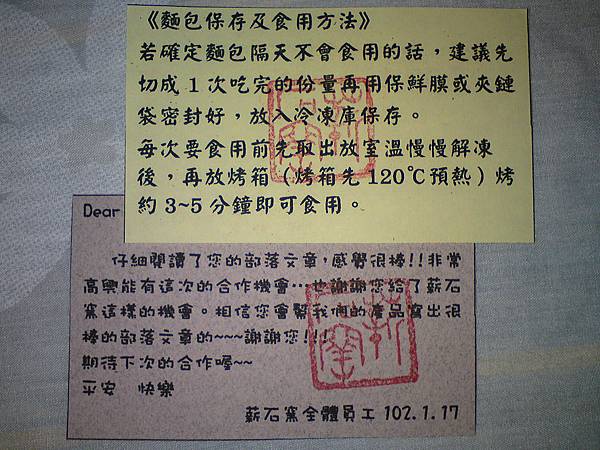 《麵包保存及食用方法》
若確定麵包隔天不會食用的話，建議先
切成1次吃完的份量再用保鮮膜或夾鏈
袋密封好，放入冷凍庫保存。
每次要食用前先取出放室溫慢慢解凍
後，再放烤箱（烤箱先120℃預熱）烤
約3~5分鐘即可食用。
Dear
仔細閱讀了您的部落文章，感覺很棒!!非常
高興能有這次的合作機會…也謝謝您給了薪石
窯這樣的機會。相信您會幫我們的產品寫出很
棒的部落文章的~~~謝謝您!!!
期待下次的合作喔~~
平安　快樂
薪石窯全體員工 102.1.17